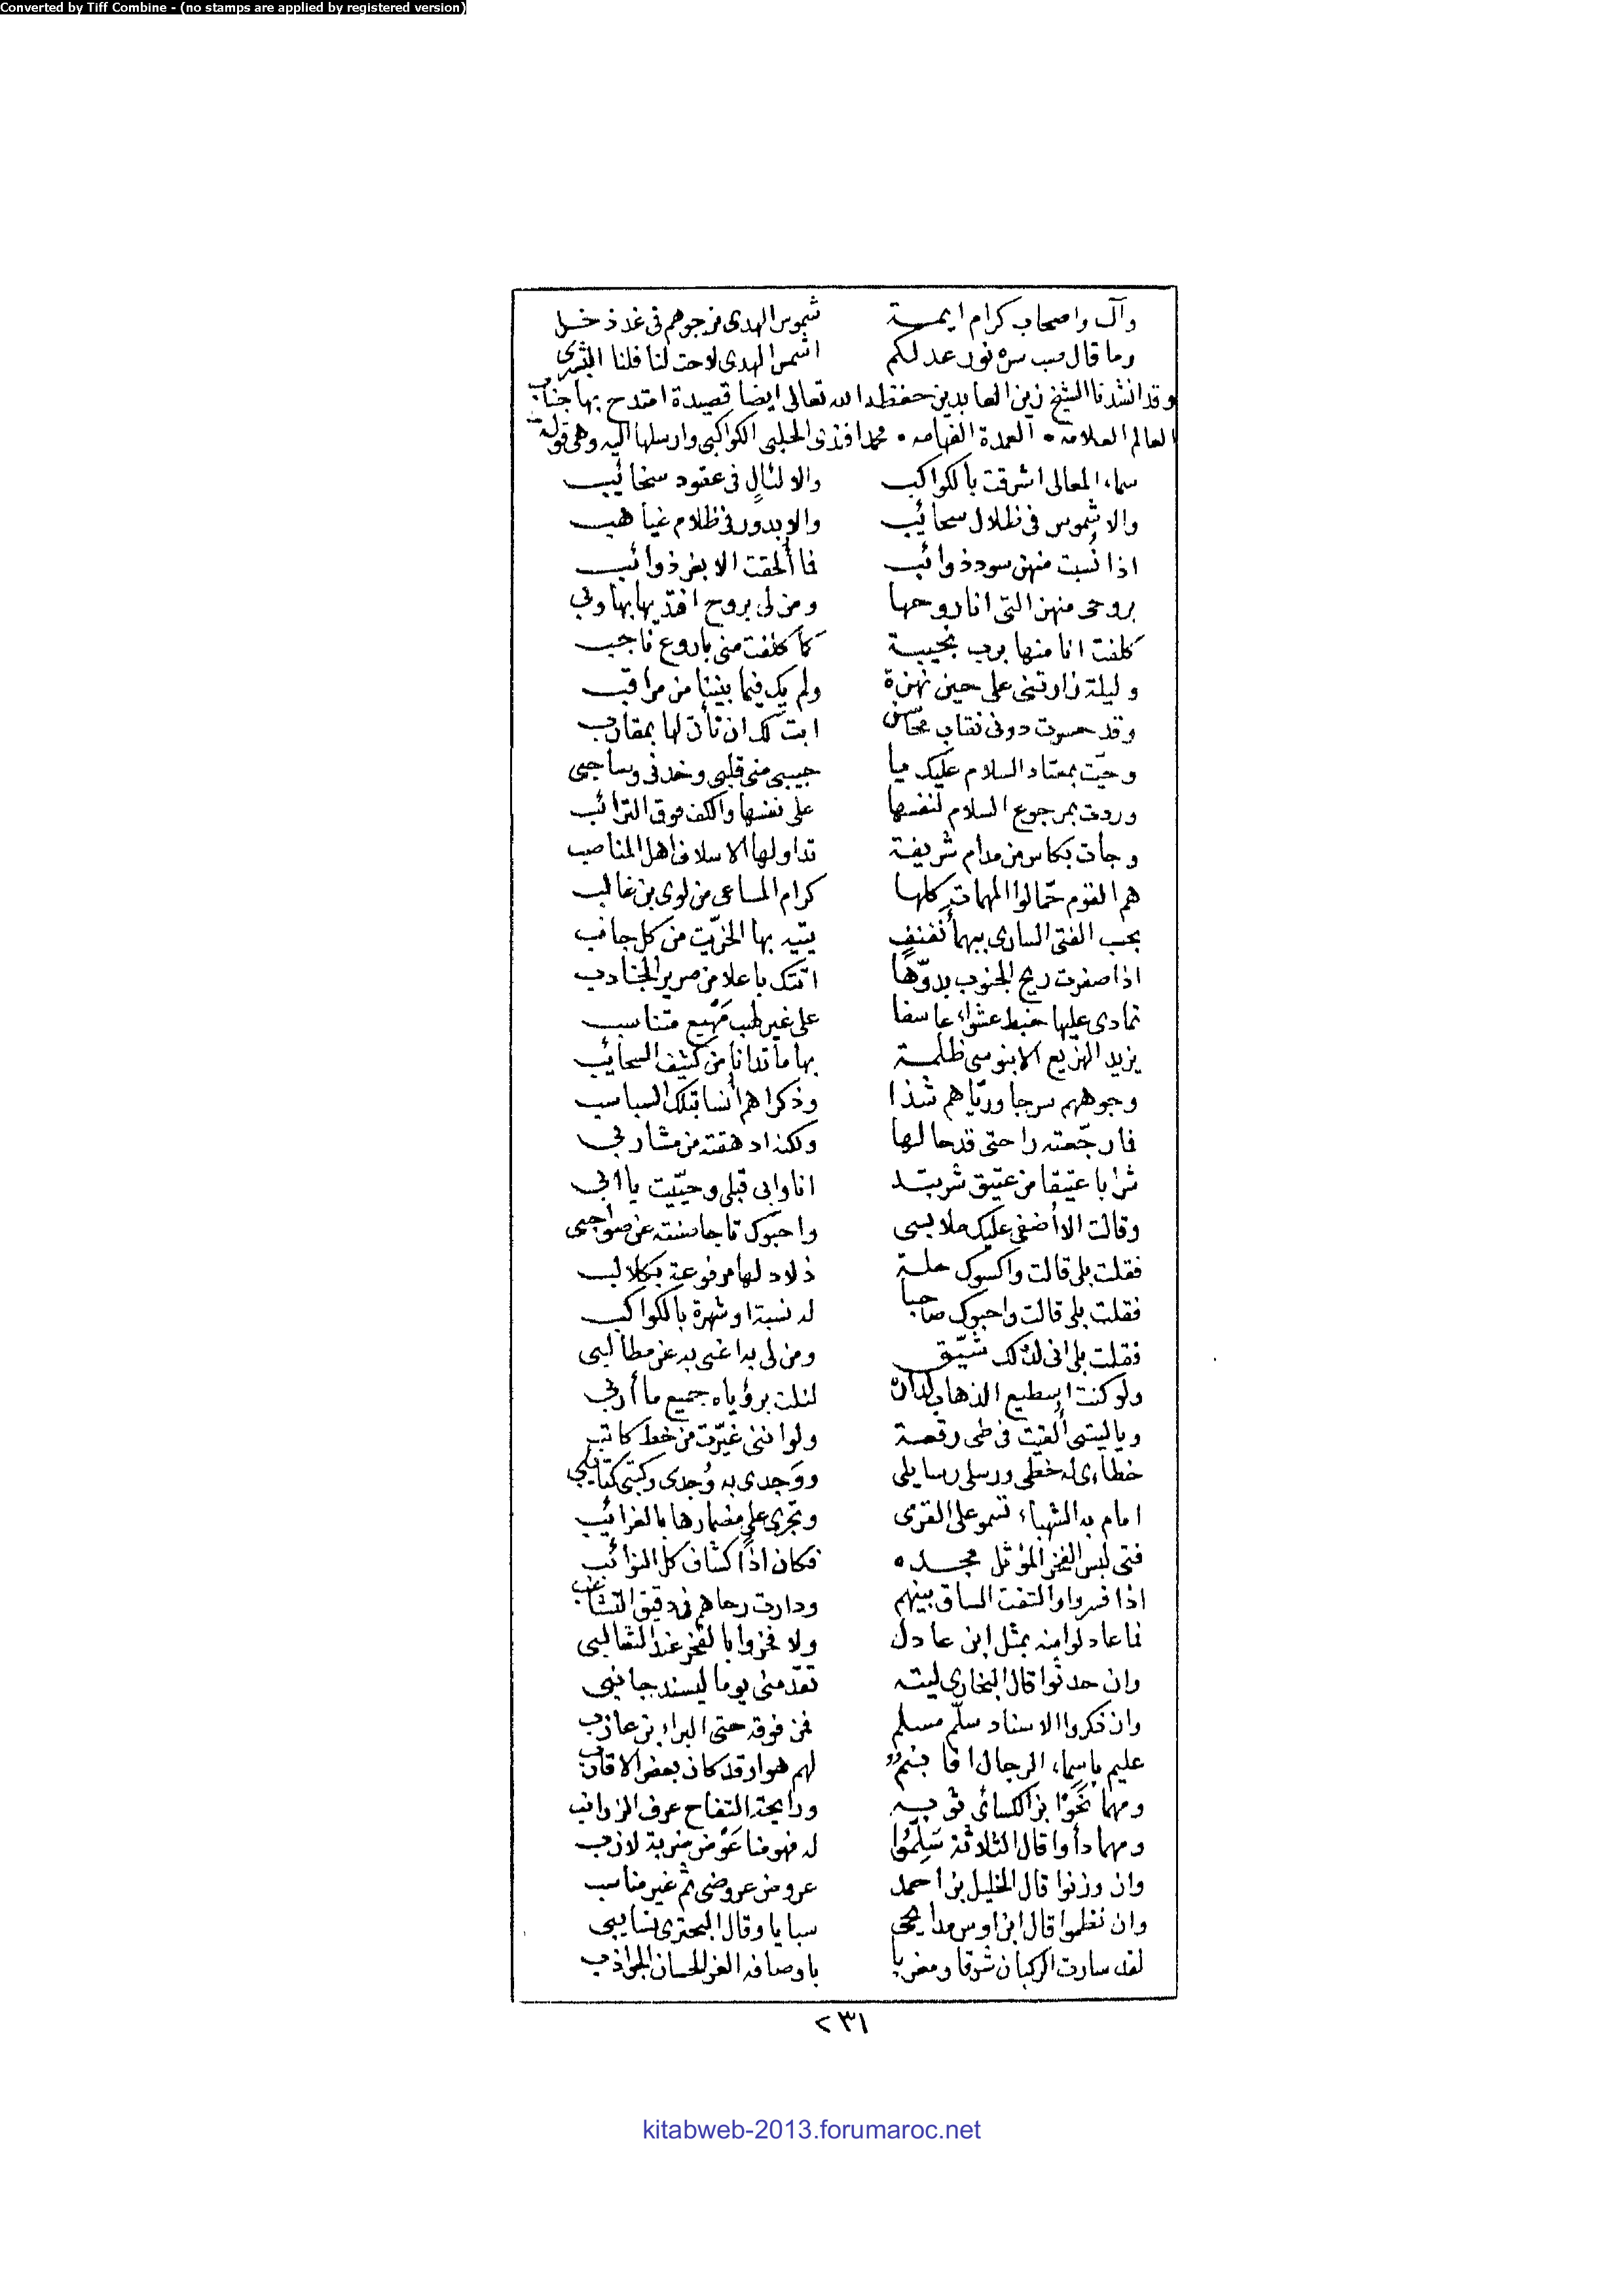 Converted by Tiff Combine - (no stamps are applied by registered version)
وآل واصحاب كرام ايمة شموس الهدى نرجوهم فى غد ذخل
وما قال سره نور عدلكم اشمس الهدى لاحت لنا فلنا البشرى
وقد انشدنا الشيخ زين العابدين حفظه الله تعالى ايضا قصيدة امتدح بها جناب
العالم العلامه • العمدة الفهامه • محمد افندى الحلبى الكواكبى وارسلها اليه وهى قوله
سماء المعالى اشرقت بالكواكب والا لئال فى عقود سخائب
والا شموس فى ظلال سحائب والا بدور فى ظلام غياهب
اذا نسبت منهن سود ذوائب فما ألحقت الا بغر ذوائب
بروحى منهن التى انا روحها ومن لى بروح افديها بها وبى
كلفت انا منها برب نجيبة كما كلفت منى باروع ناجب
وليلة زارتنى على حين نهزة ولم يك فيما بيننا من مراقب
وقد حسرت دونى نقاب محاسن ابت لك ان تأت لها بمقارب
وحيت بمعتاد السلام عليك يا حبيبى منى قلبى وخدنى وصاحبى
وردت بمرجوع السلام لنفسها على نفسها والكف فوق الترائب
وجات بكاس من مدام شريفة تداولها الاسلاف اهل المناصب
هم القوم حمالوا المهمات كلها كرام المساعى من لوى بن غالب
بحب الفتى السارى بيهماء نفنف يتيه بها الخريت من كل جانب
اذا صفرت ريح الجنوب بدوها اتتك باعلا من صرير الجنادب
تمادى عليها خبط عشواء عاسفا على غير لحب مهيع متناسب
يزيد الهزيع الابنوسى ظلمة بها ما تدانا من كثيف السحائب
وجوههم سرجا ورياهم شذا وذكراهم أنسا بتلك السباسب
فما رجعته راحتى قدحا لها ولكنه ادهقته من مشاربى
شرابا عتيقا من عتيق شربته انا وابى قبلى وحييت يا ابى
وقالت الا أضفى عليك ملابسى واحبوك تاجا صنته عن صواحبى
فقلت بلى قالت واكسوك حلة ذلاذلها مرفوعة بكلالب
فقلت بلى قالت واحبوك صاحبا له نسبة او شهرة بالكواكب
فقلت بلى انى لذلك شيق ومن لى بداعنى به عن مطالبى
ولو كنت اسطيع الذهاب لنلت برؤياه جميع مآربى
وياليتنى ألفيت فى طى رقعة ولو اننى غيرت من خط كاتب
خطاءى له خطى ورسلى رسايلى ووجدى به وجدى وكتبى كتايبى
امام به الشهباء تسمو على القرى وتجرى على مضمارها بالغرائب
فتى لبس الفخر المؤثل مجده فكان اذا كشاف كل النوائب
اذا فسروا والتفت الساق بينهم ودارت رحاهم فى دقيق التشاغب
فما عادلوا منه بمثل ابن عادل ولا فخروا بالفخر عند الثعالبى
وان حدثوا قال البخارى ليته تقدمنى يوما ليسند جانبى
وان ذكروا الاسناد سلم مسلم فمن فوقه حتى البراء بن عازب
عليم باسماء الرجال لهم هو او قد كان بعض الاقارب
ومهما نحوا بز الكسائى ثوبه ورايحة التفاح عرف الزرانب
ومهما دأوا قال الثلاثة سلموا له فهو منا عوض من ضربة لازب
وان وزنوا قال الخليل بن احمد عروض عروضى ثم غير مناسب
وان نظموا قال ابن اوس مدايحى سبايا وقال البحترى نسايبى
لقد سارت الركبان شرقا ومغربا باوصافه الغر الحسان الجواذب
٢٣١
kitabweb-2013.forumaroc.net